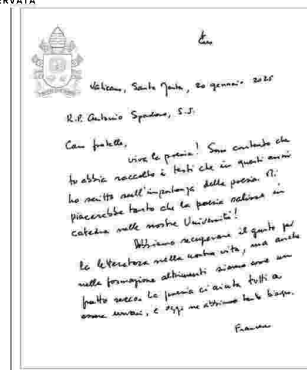 ERVATA
Vaticano, Santa Marta, 20 gennaio 2025
R.P. Antonio Spadaro, S.J.
Caro fratello,
viva la poesia! Sono contento che
tu abbia raccolto i testi che in questi anni
ho scritto sull'importanza della poesia. Mi
piacerebbe tanto che la poesia salisse in
cattedra nelle nostre Università!
Abbiamo recuperare il gusto per
la letteratura nella nostra vita, ma anche
nella formazione altrimenti siamo come un
frutto secco. La poesia ci aiuta tutti a
essere umani, e oggi ne abbiamo tanto bisogno.
Francesco